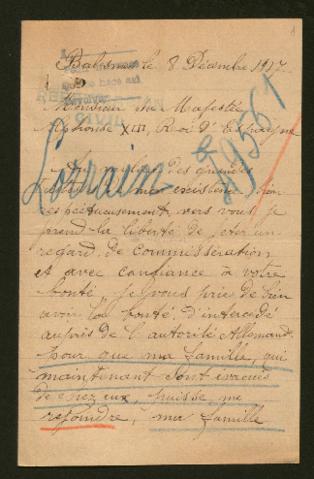 le 8 Décembre 1917
Monsieur Sa Majesté
Alphonse XIII, Roi d'Espagne
Lorrain
89561
CIVIL
respectueusement, vers vous je
prend la liberté de jeter un
regard de commisération
et avec confiance à votre
bonté, je vous prie de bien
avoir la bonté d'intercedé
auprès de l'autorité Allemande
pour que ma famille, qui
maintenant sont évacués
de chez eux, puisse me
rejoindre, ma famille